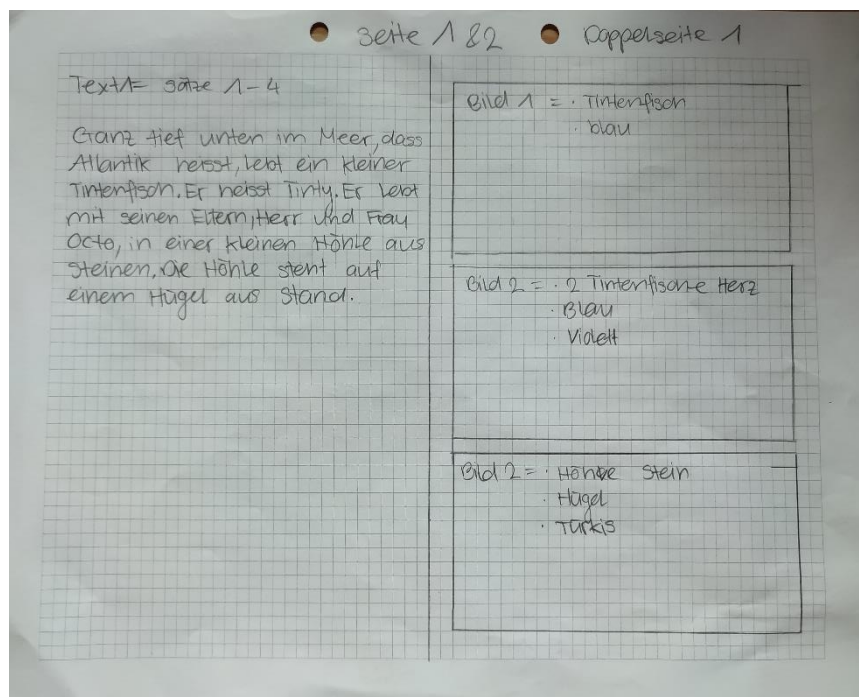 Seite 1 & 2 Doppelseite 1
Text 1 = Sätze 1-4
Ganz tief unten im Meer, dass
Atlantik heisst, lebt ein kleiner
Tintenfisch. Er heisst Tinty. Er lebt
mit seinen Eltern, Herr und Frau
Octo, in einer kleinen Höhle aus
Steinen. Die Höhle steht auf
einem Hügel aus Stand.
Bild 1 = · Tintenfisch
· blau
Bild 2 = · 2 Tintenfische Herz
· Blau
· Violett
Bild 2 = · Höhle Stein
· Hügel
· Türkis